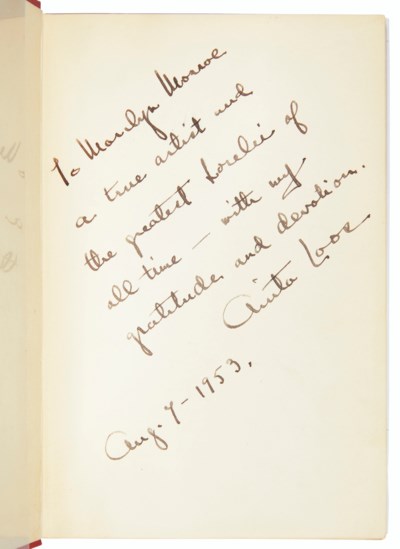 To Marilyn Monroe
a true artist and
the greatest Lorelei of
all time — with my
gratitude and devotion.
Anita Loos
Aug. 7 - 1953.